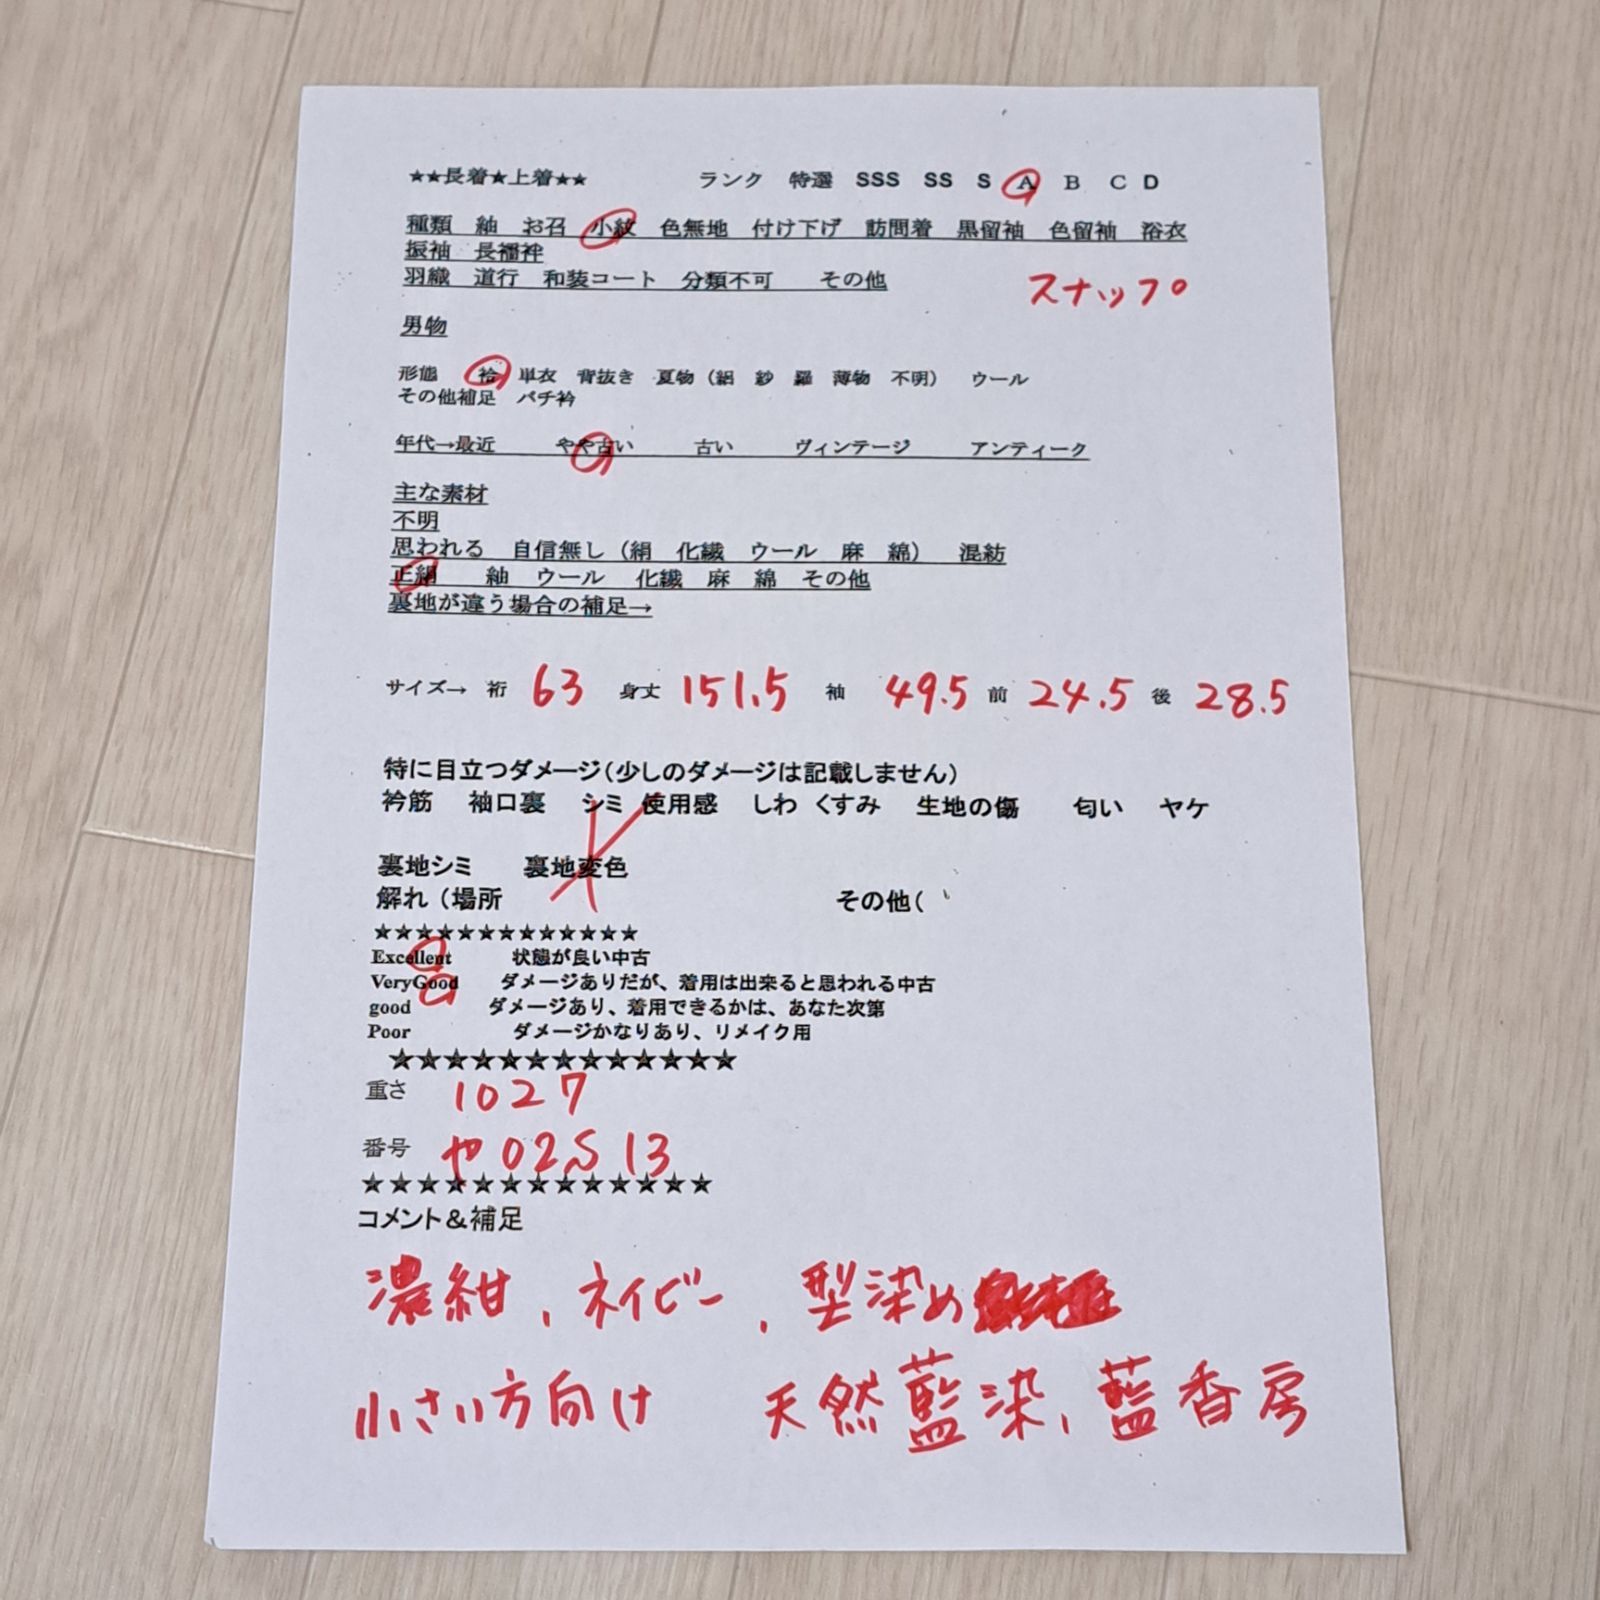 ★★長着★上着★★ ランク 特選 SSS SS S A B C D
種類 紬 お召 小紋 色無地 付け下げ 訪問着 黒留袖 色留袖 浴衣
振袖 長襦袢
羽織 道行 和装コート 分類不可 その他
スナップ
男物
形態 袷 単衣 背抜き 夏物（絽 紗 羅 薄物 不明） ウール
その他補足 バチ衿
年代→最近 やや古い 古い ヴィンテージ アンティーク
主な素材
不明
思われる 自信無し（絹 化繊 ウール 麻 綿） 混紡
正絹 紬 ウール 化繊 麻 綿 その他
裏地が違う場合の補足→
サイズ→ 裄 63 身丈 151.5 袖 49.5 前 24.5 後 28.5
特に目立つダメージ（少しのダメージは記載しません）
衿筋 袖口裏 シミ 使用感 しわ くすみ 生地の傷 匂い ヤケ
裏地シミ 裏地変色
解れ（場所 その他（
★★★★★★★★★★★★★
Excellent 状態が良い中古
VeryGood ダメージありだが、着用は出来ると思われる中古
good ダメージあり、着用できるかは、あなた次第
Poor ダメージかなりあり、リメイク用
★★★★★★★★★★★★★
重さ 1027
番号 や02S13
★★★★★★★★★★★★★
コメント＆補足
濃紺、ネイビー、型染め
小さい方向け 天然藍染、藍香房